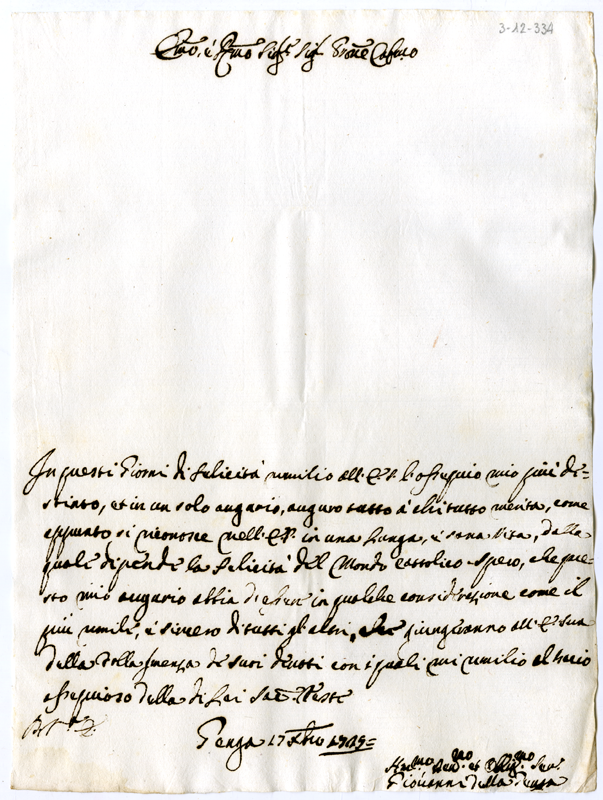 3-12-334
Em̃o, è Rm̃o Sig.r Sig.r Prõne Colm̃o
In questi Giorni di felicità umilio all' E.V. l'ossequio mio più de=
stinto, et in un solo augurio, auguro tutto à chi tutto merita, come
appunto si riconosce nell' E.V. in una lunga, è sana Vita, dalla
quale dipende la felicità del Mondo Cattolico. Spero, che que=
sto mio augurio abbia di essere in qualche considerazione come il
più umile, è sincero di tutti gli altri, che giungeranno all' E. sua
della de suoi di tutti con i quali mi umilio al bacio
ossequioso della di Lei Sac: Veste
Penza 17 Xbre
Giovanni della Penza